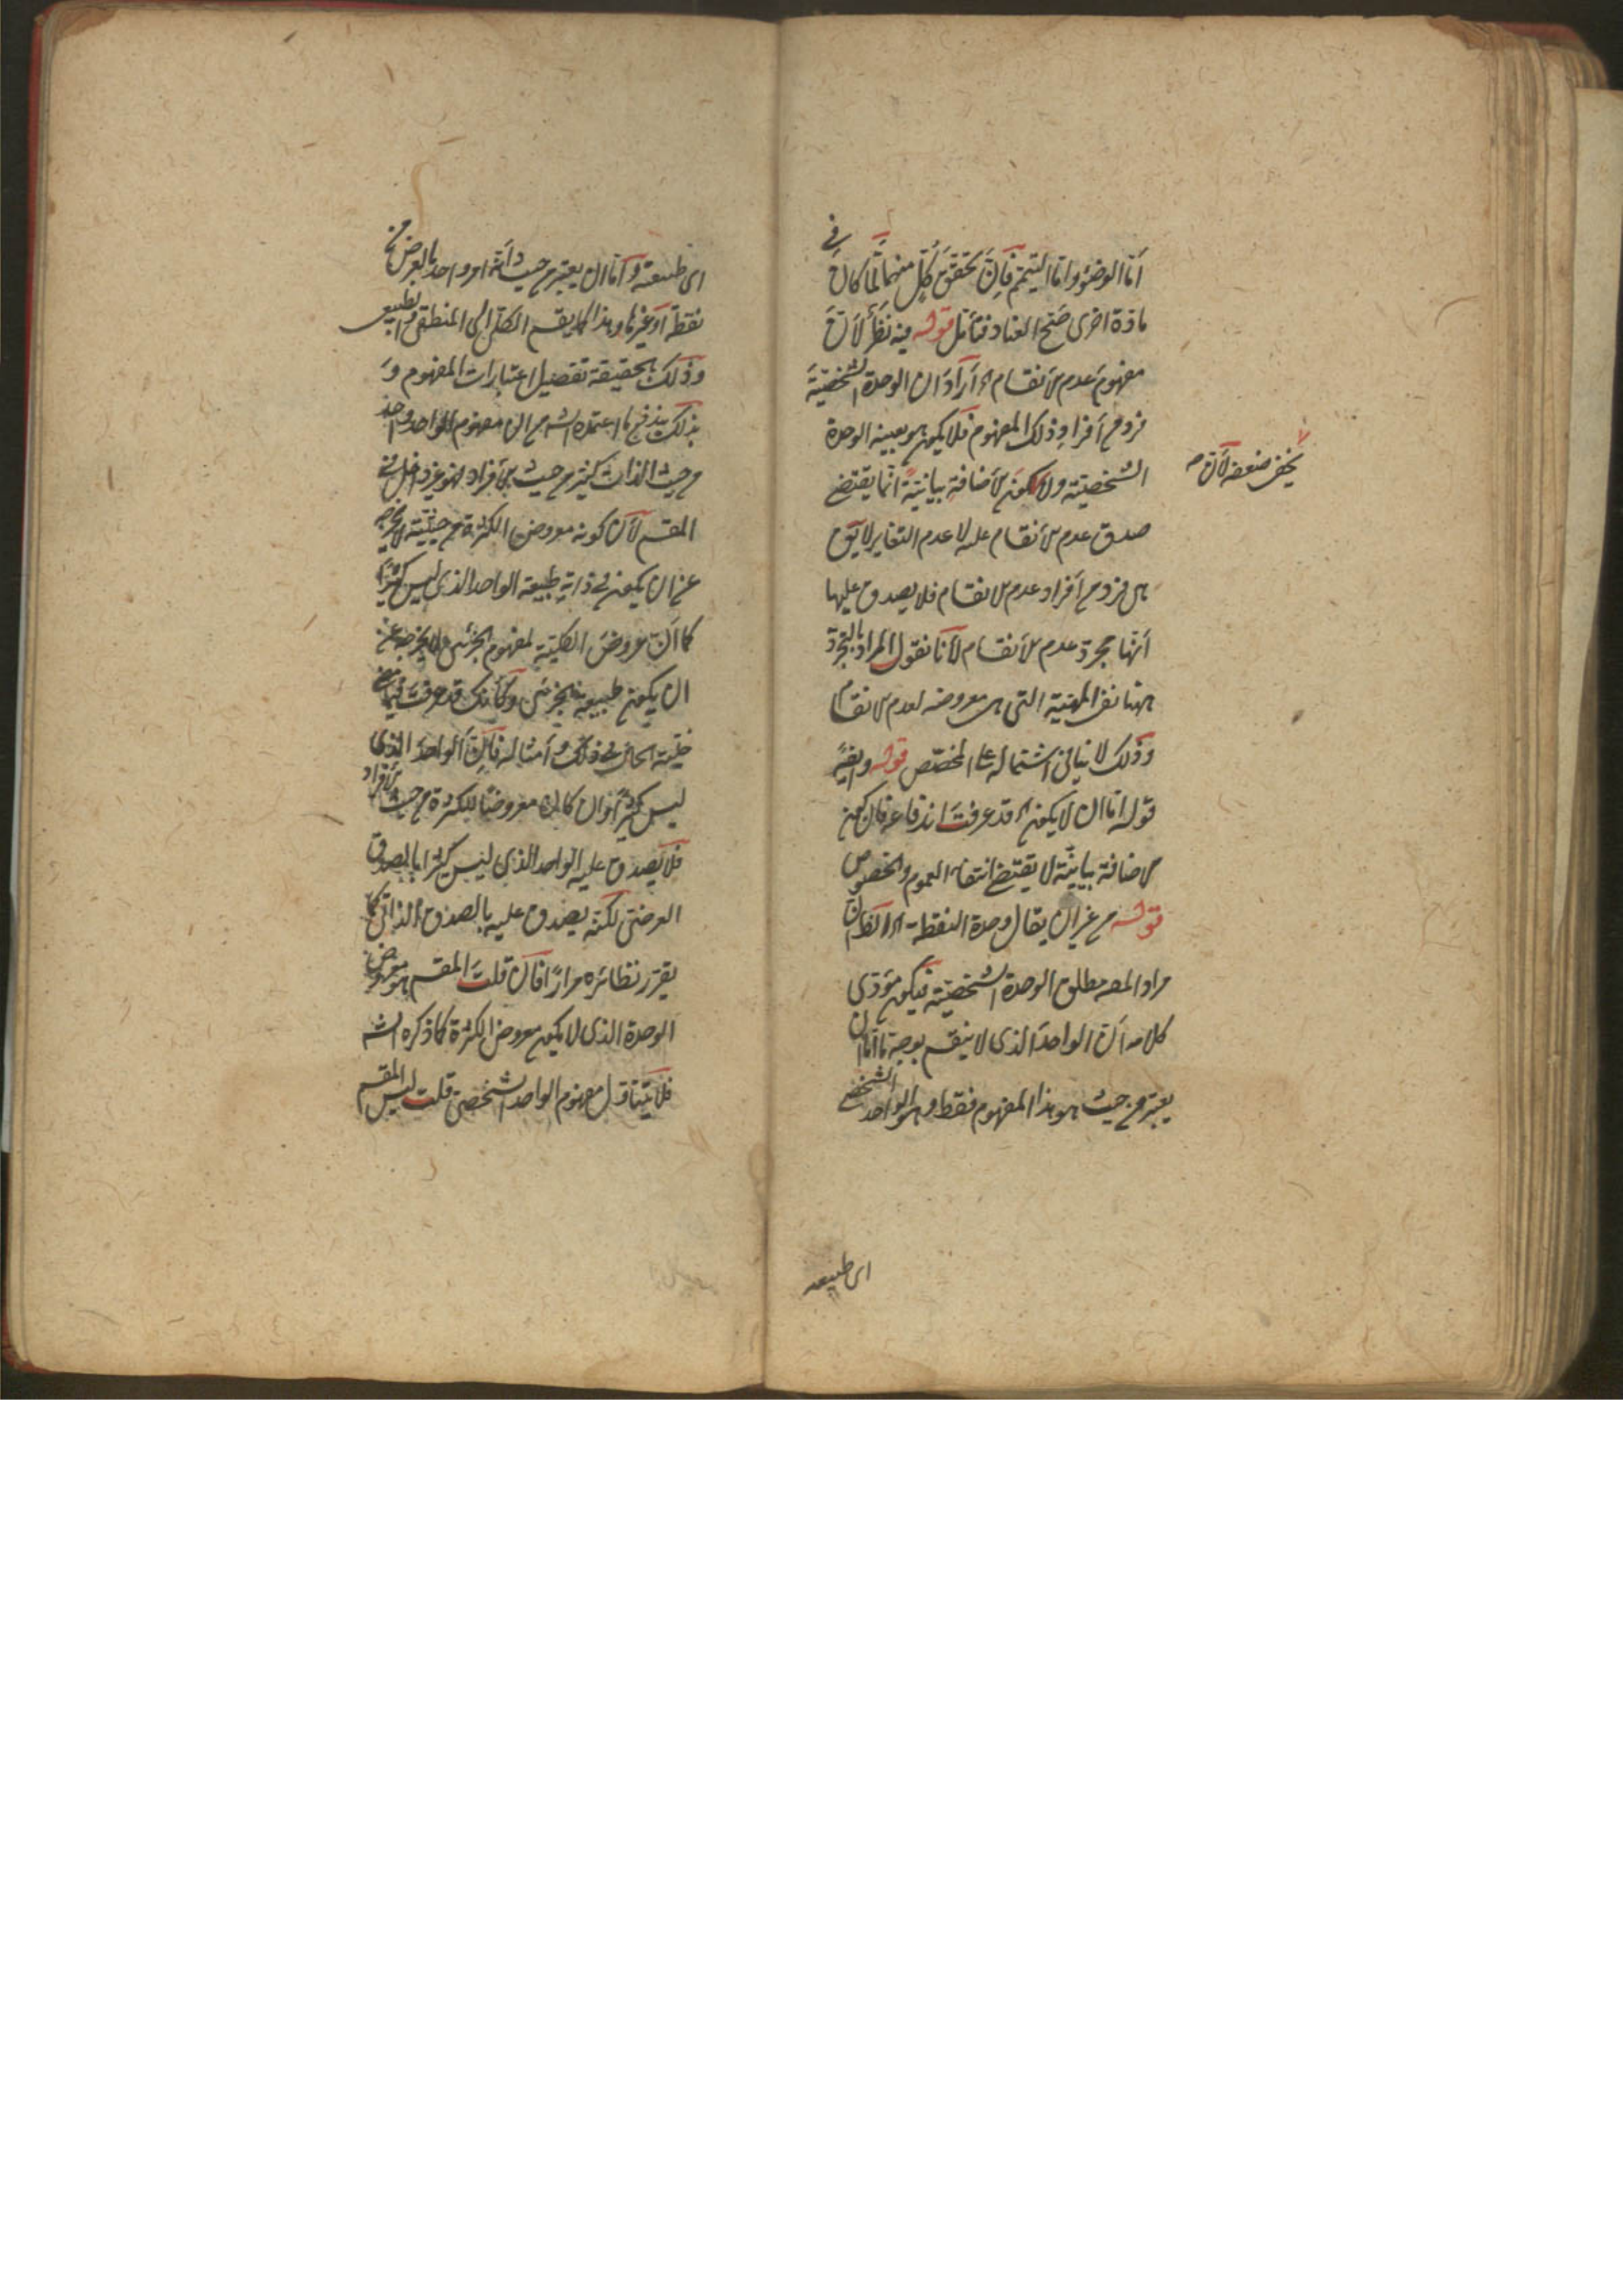 أما الوضوء وإما التيمم فإن تحقق كل منهما لما كان في
مادة اخرى صح العناد فتأمل قوله فيه نظر لأن
مفهوم عدم الانقسام اه أراد ان الوحدة الشخصية
فرد من أفراد ذلك المفهوم فلا يكون هو بعينه الوحدة
الشخصية ولا كون الأضافة بيانية انما يقتضى
صدق عدم الانقسام عليه لا عدم التغاير لا يق
هى فرد من أفراد عدم الانقسام فلا يصدق عليها
أنها مجرد عدم الانقسام لأنا نقول المراد بالتجرد
ههنا نفى المهية التى هى معروضه لعدم الانقسام
وذلك لا ينافى اشتماله على المخصص قوله وايضا
قوله اما ان لا يكون اه قد عرفت اندفاعه فان كون
الاضافة بيانية لا يقتضى انتفاء العموم والخصوص
قوله من غير ان يقال وحدة النقطة اه الظ ان
مراد المصه مطلق الوحدة الشخصية فيكون مؤدى
كلامه أن الواحد الذى لا ينقسم بوجه ما اما ان
يعتبر من حيث هو هذا المفهوم فقط وهو الواحد الشخصى
يخفى ضعفه لأن
اى طبيعه
اى طبيعته وأما ان يعتبر من حيث أنه امر واحد بالعرض
نقطة أو غيرها وهذا كما يقسم الكلى الى المنطقى والطبيعى
وذلك بالحقيقة تفصيل اعتبارات المفهوم و
بذلك يندفع ما اعتمده الشه من ان مفهوم الواحد واحد
من حيث الذات كثير من حيث الأفراد فهو غير داخل فى
المقسم لأن كونه معروض الكثرة من حيثية لا يخرجه
عن ان يكون فى ذاته طبيعة الواحد الذى ليس كثيرا
كما أن عروض الكلية لمفهوم الجزئى لا يخرجه عن
ان يكون طبيعة الجزئى وكأنك قد عرفت فيما مضى
حقيقة الحال فى ذلك وأمثاله فان الواحد الذى
ليس كثيرا وان كان معروضا للكثرة من حيث الأفراد
فلا يصدق عليه الواحد الذى ليس كثيرا بالصدق
العرضى لكنه يصدق عليه بالصدق الذاتى كما
يقرر نظائره مرارا فان قلت المقسم هو معروض
الوحدة الذى لا يكون معروض الكثرة كما ذكره الشه
فلا يتناول مفهوم الواحد الشخصى قلت ليس المقسم